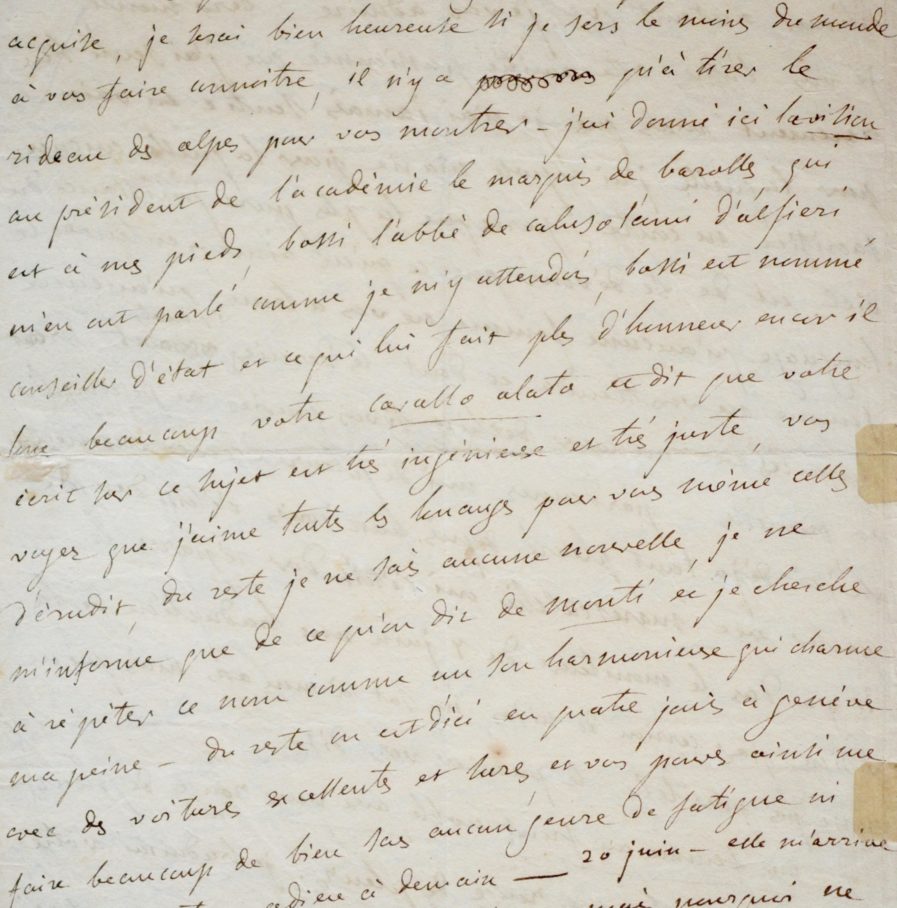 acquise, je serai bien heureuse si je sers le moins du monde
à vous faire connoitre, il n'y a qu'à tirer le
rideau des alpes pour vous montrer – j'ai donné ici la vision
au président de l'académie le marquis de barolles qui
est à mes pieds, bossi l'abbé de caluso l'ami d'alfieri
m'en ont parlé comme je m'y attendois, bossi est nommé
conseiller d'état et ce qui lui fait plus d'honneur encor il
loue beaucoup votre cavallo alato et dit que votre
écrit sur ce sujet est très ingénieuse et très juste, vous
voyez que j'aime toutes les louanges pour vous même celles
d'érudit, du reste je ne sais aucune nouvelle, je ne
m'informe que de ce qu'on dit de monti et je cherche
à répéter ce nom comme un son harmonieux qui charme
ma peine – du reste on est d'ici en quatre jours à genève
avec des voitures excellentes et sures, et vous pouvez ainsi me
faire beaucoup de bien sans aucun genre de fatigue ni
adieu à demain — 20 juin – elle m'arrive
mais pourquoi ne